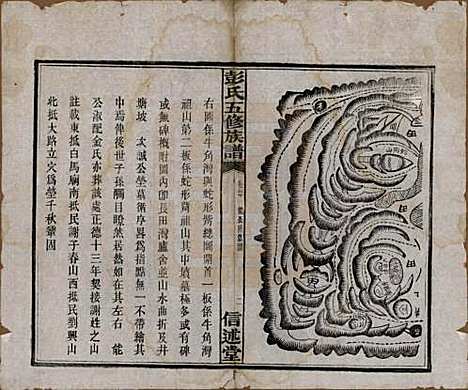 彭氏五修族譜
信述堂
右圖係牛角灣與蛇形塝總圖開首一板係牛角灣
祖山第二板係蛇形 祖山其中墳墓極多或有碑
或無碑概附圖內即長田灣廬舍並山水曲折及井
塘坡 次誠公塋墓循序畧爲指點無一不帶繪其
中焉俾後世子孫矚目瞭然居然如在其左右 能
公淑配金氏亦葬該處正德十三年契接謝姓之山
註載東抵白馬廟南抵民謝子春山西抵民劉興山
北抵大路立火爲塋千秋鞏固